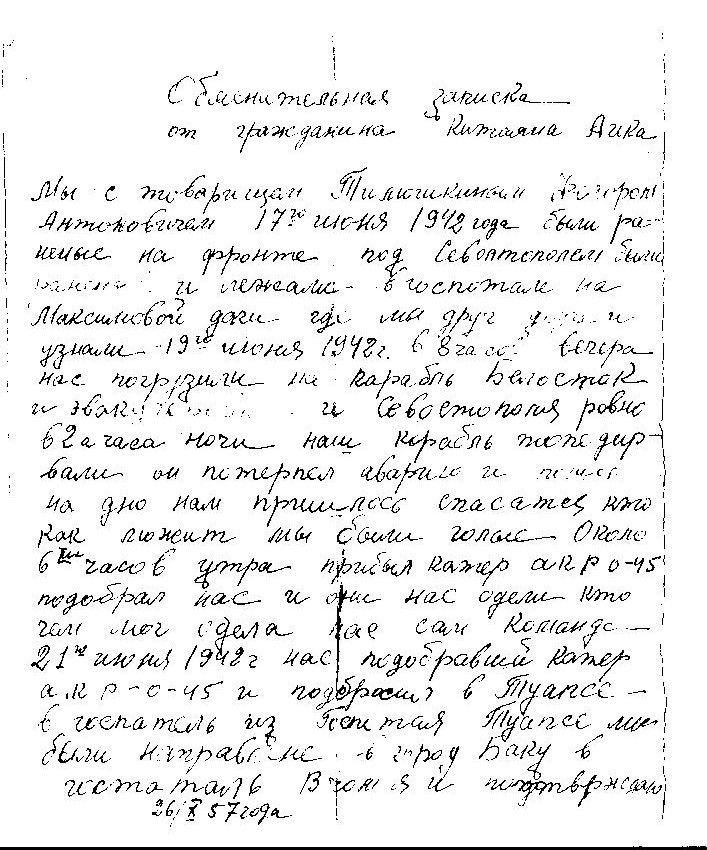 Обменительная записка
от гражданина Китояна Айка
Мы с товарищам Тимошкиным
Антоновичем 17го июня 1942 года были ра-
неные на фронте под Севолтополем были
и лежали в госпотале на
Максимовой дачи где мы друг друга и
узнали 19го июня 1942г. в 8 часов вечера
нас погрузили на карабль Белосток
и из Севостополя ровно
в 2а часа ночи наш корабль топедир-
вали он потерпел аварию и пошел
на дно нам пришлось спасатся кто
как можит мы были голые Около
6ти часов утра прибыл катер акр о-45
подобрал нас и они нас одели кто
чем мог одела нас сам команда
21го июня 1942г нас подобравший катер
акр-о-45 и подбросил в Туапсе
в госпатель из Госпиталя Туапсе мы
были направлене в город Баку в
госпоталь подтверждаю
26/X 57 года